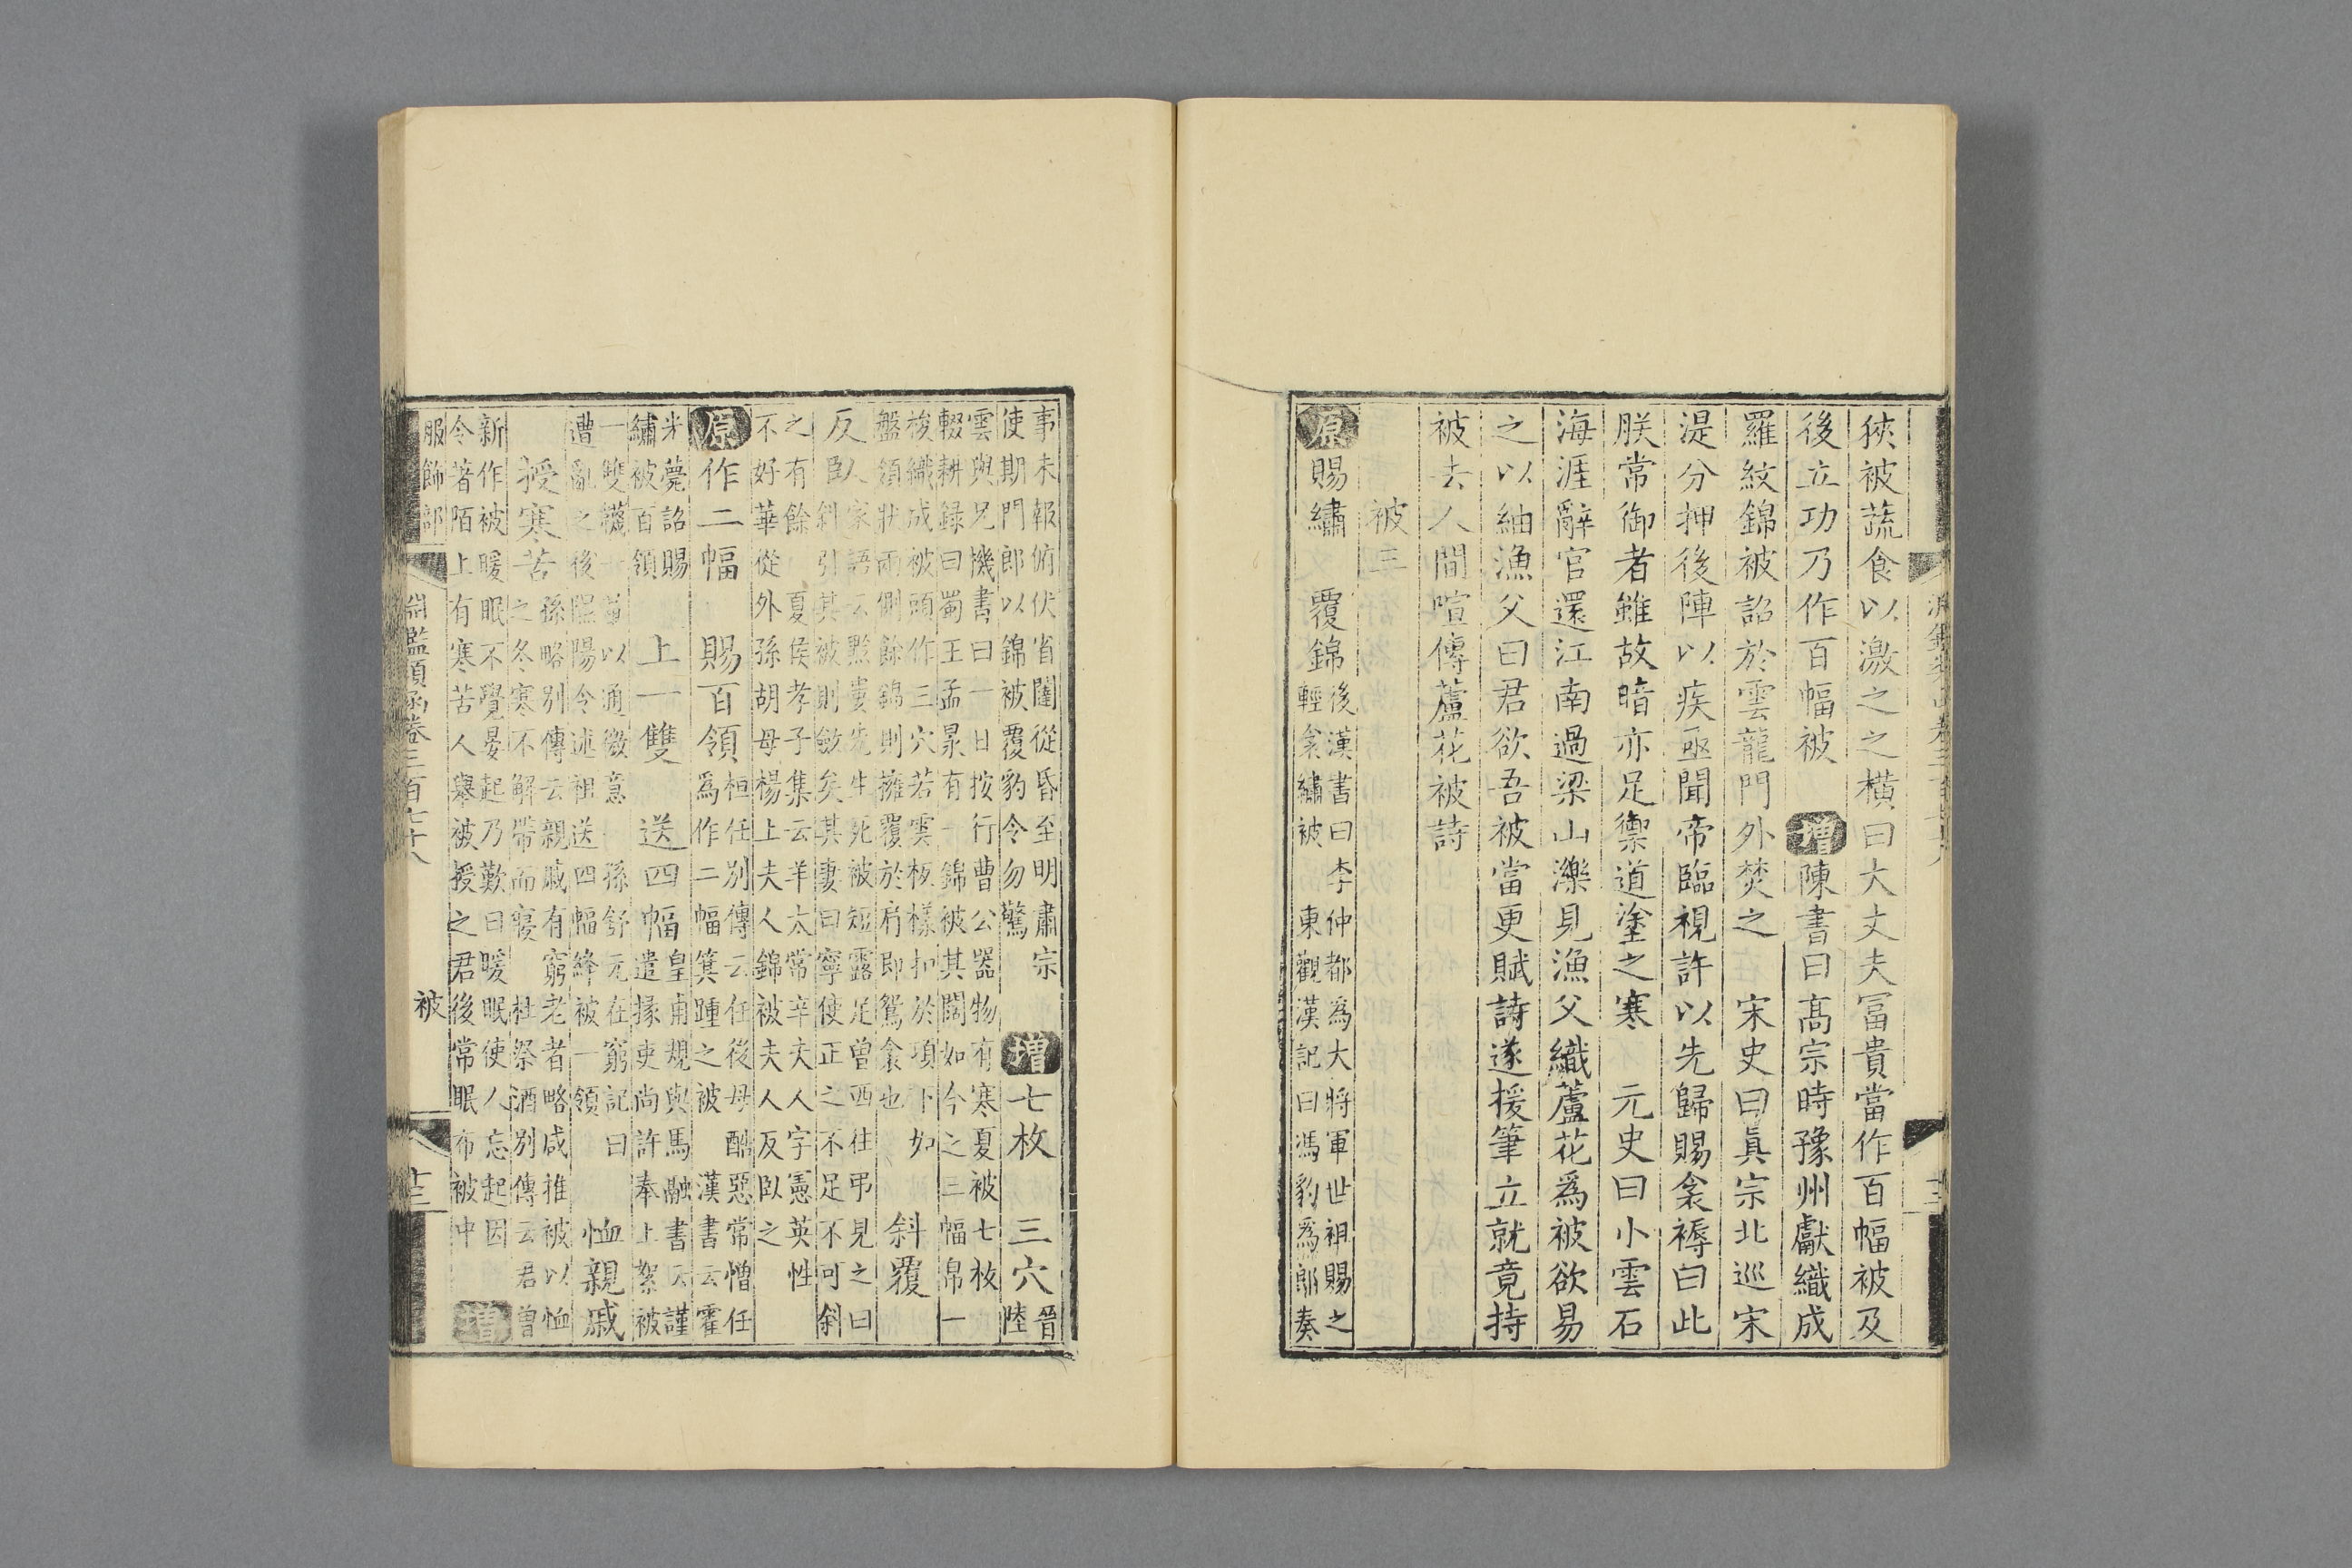 狹被蔬食以激之之橫曰大丈夫冨貴當作百幅被及
後立功乃作百幅被 增 陳書曰髙宗時豫州獻織成
羅紋錦被詔於雲龍門外焚之 宋史曰眞宗北巡宋
湜分押後陣以疾亟聞帝臨視許以先歸賜衾褥曰此
朕常御者雖故暗亦足禦道塗之寒 元史曰小雲石
海涯辭官還江南過梁山濼見漁父織蘆花爲被欲易
之以紬漁父曰君欲吾被當更賦詩遂援筆立就竟持
被去人間喧傳蘆花被詩
被三
原 賜繡 覆錦 後漢書曰李仲都爲大將軍世祖賜之
輕衾繡被 東觀漢記曰馮豹爲郎奏
事未報俯伏省闥從昏至明肅宗
使期門郎以錦被覆豹令勿驚 增 七枚 三穴 晉
陸
雲與兄機書曰一日按行曹公器物有寒夏被七枚
輟耕録曰蜀王孟昶有一錦被其闊如今之三幅帛一
梭織成被頭作三穴若雲板樣扣於項下如
盤領狀兩側餘錦則擁覆於肩即鴛衾也 斜覆
反臥 家語云黔婁先生死被短露足曾西往弔見之曰
斜引其被則斂矣其妻曰寧使正之不足不可斜
之有餘 夏侯孝子集云羊太常辛夫人字憲英性
不好華從外孫胡母楊上夫人錦被夫人反臥之
原 作二幅 賜百領 桓任別傳云任後母酷惡常憎任
爲作二幅箕踵之被 漢書云霍
光薨詔賜
繡被百領 上一雙 送四幅 皇甫規與馬融書云謹
遣掾吏尚許奉上絮被
一雙襪一量以通微意 孫舒元在窮記曰
遭亂之後臨陽令述祖送四幅絳被一領 恤親戚
授寒苦 孫略別傳云親戚有窮老者略咸推被以恤
之冬寒不解帶而寢 杜祭酒別傳云君曾
新作被暖眠不覺晏起乃歎曰暖眠使人忘起因
令著陌上有寒苦人舉被授之君後常眠布被中 增
服飾部 淵鑑類函卷三百七十八 被 十三